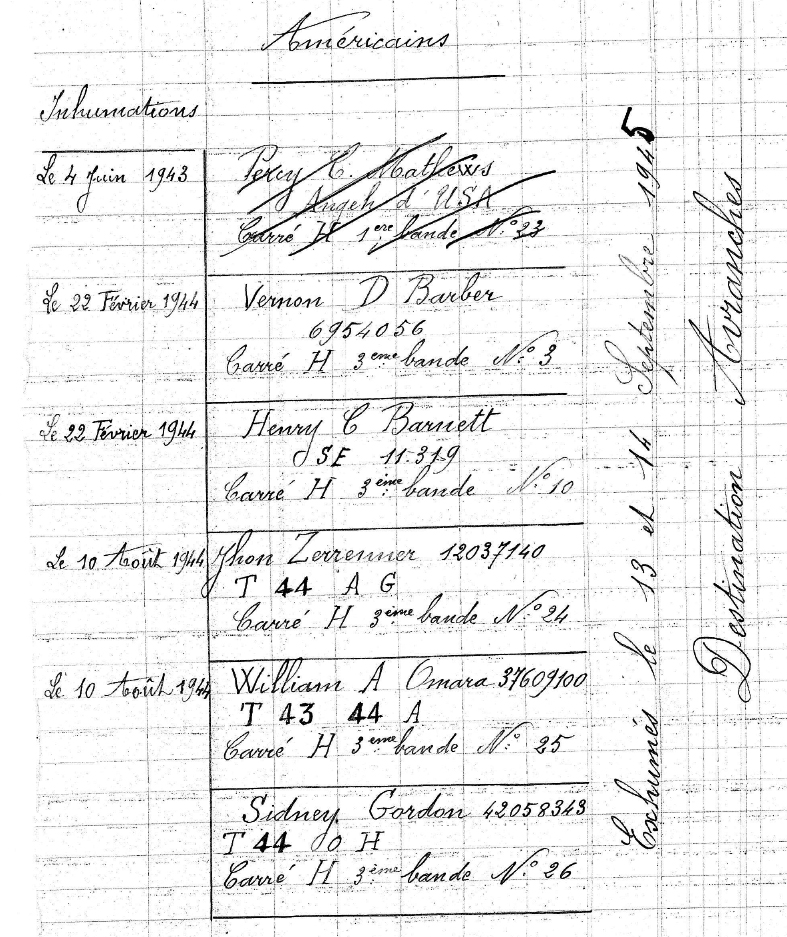 Américains
Inhumations
Le 4 Juin 1943
Percy C. Mathews
d'USA
Carré H 1ere bande N° 23
Le 22 Février 1944
Vernon D Barber
6954056
Carré H 3eme bande N° 3
Le 22 Février 1944
Henry C Barnett
SE 11.319
Carré H 3ème bande N° 10
Le 10 Août 1944
Jhon Zerrenner 12037140
T 44 A G
Carré H 3ème bande N° 24
Le 10 Août 1944
William A Omara 37609100
T 43 44 A
Carré H 3eme bande N° 25
Sidney Gordon 42058343
T 44 O H
Carré H 3ème bande N° 26
Exhumés le 13 et 14 Septembre 1945
Destination Avranches